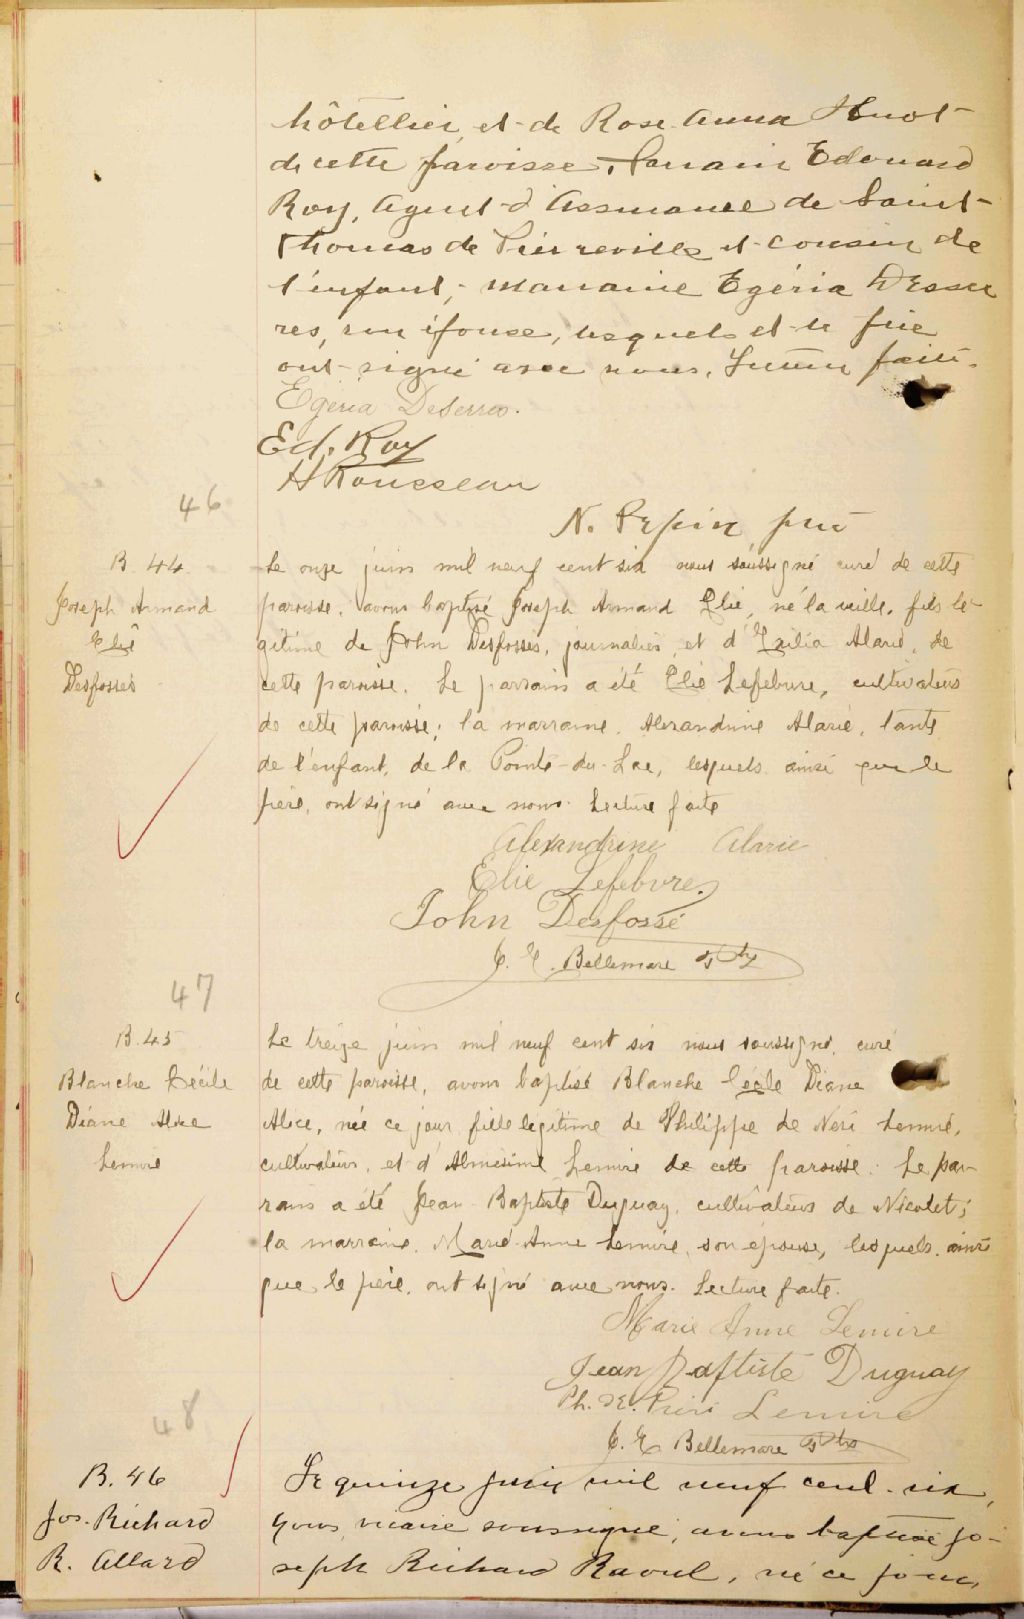 hôtellier, et de Rose-Anna Huot
de cette paroisse. Parrain Edouard
Roy, Agent d'Assurance de Saint-
Thomas de Pierreville et cousin de
l'enfant; marraine Egéria Desser
res, son épouse, lesquels et le père
ont signé avec nous. Lecture faite.
Egéria DeSerres.
Ed. Roy
H Rousseau
46
N. Pepin ptre
B. 44
Joseph Armand
Elie
Desfossés
Le onze juin mil neuf cent six nous soussigné curé de cette
paroisse, avons baptisé Joseph Armand Elie, né la veille, fils lé-
gitime de John Desfossés, journalier, et d' Alarie, de
cette paroisse. Le parrain a été Elie Lefebvre, cultivateur
de cette paroisse; la marraine, Alexandrine Alarie, tante
de l'enfant, de la Pointe-du-Lac, lesquels ainsi que le
père, ont signé avec nous. Lecture faite
Alexandrine Alarie
Elie Lefebvre
John Desfossé
J. E. Bellemare Ptre
47
B. 45
Blanche Cécile
Diane Alice
Lemire
Le treize juin mil neuf cent six nous soussigné, curé
de cette paroisse, avons baptisé Blanche Cécile Diane
Alice, née ce jour fille légitime de Philippe de Néri Lemire,
cultivateur, et d' Lemire de cette paroisse. Le par-
rain a été Jean-Baptiste Duguay, cultivateur de Nicolet;
la marraine, Marie-Anne Lemire, son épouse, lesquels, ainsi
que le père, ont signé avec nous. Lecture faite.
Marie Anne Lemire
Jean Baptiste Duguay
Ph. de Lemire
J. E. Bellemare Ptre
48
B. 46
Jos. Richard
R. Allard
Le quinze juin mil neuf cent six,
nous, vicaire soussigné, avons baptisé Jo-
seph Richard Raoul, né ce jour,